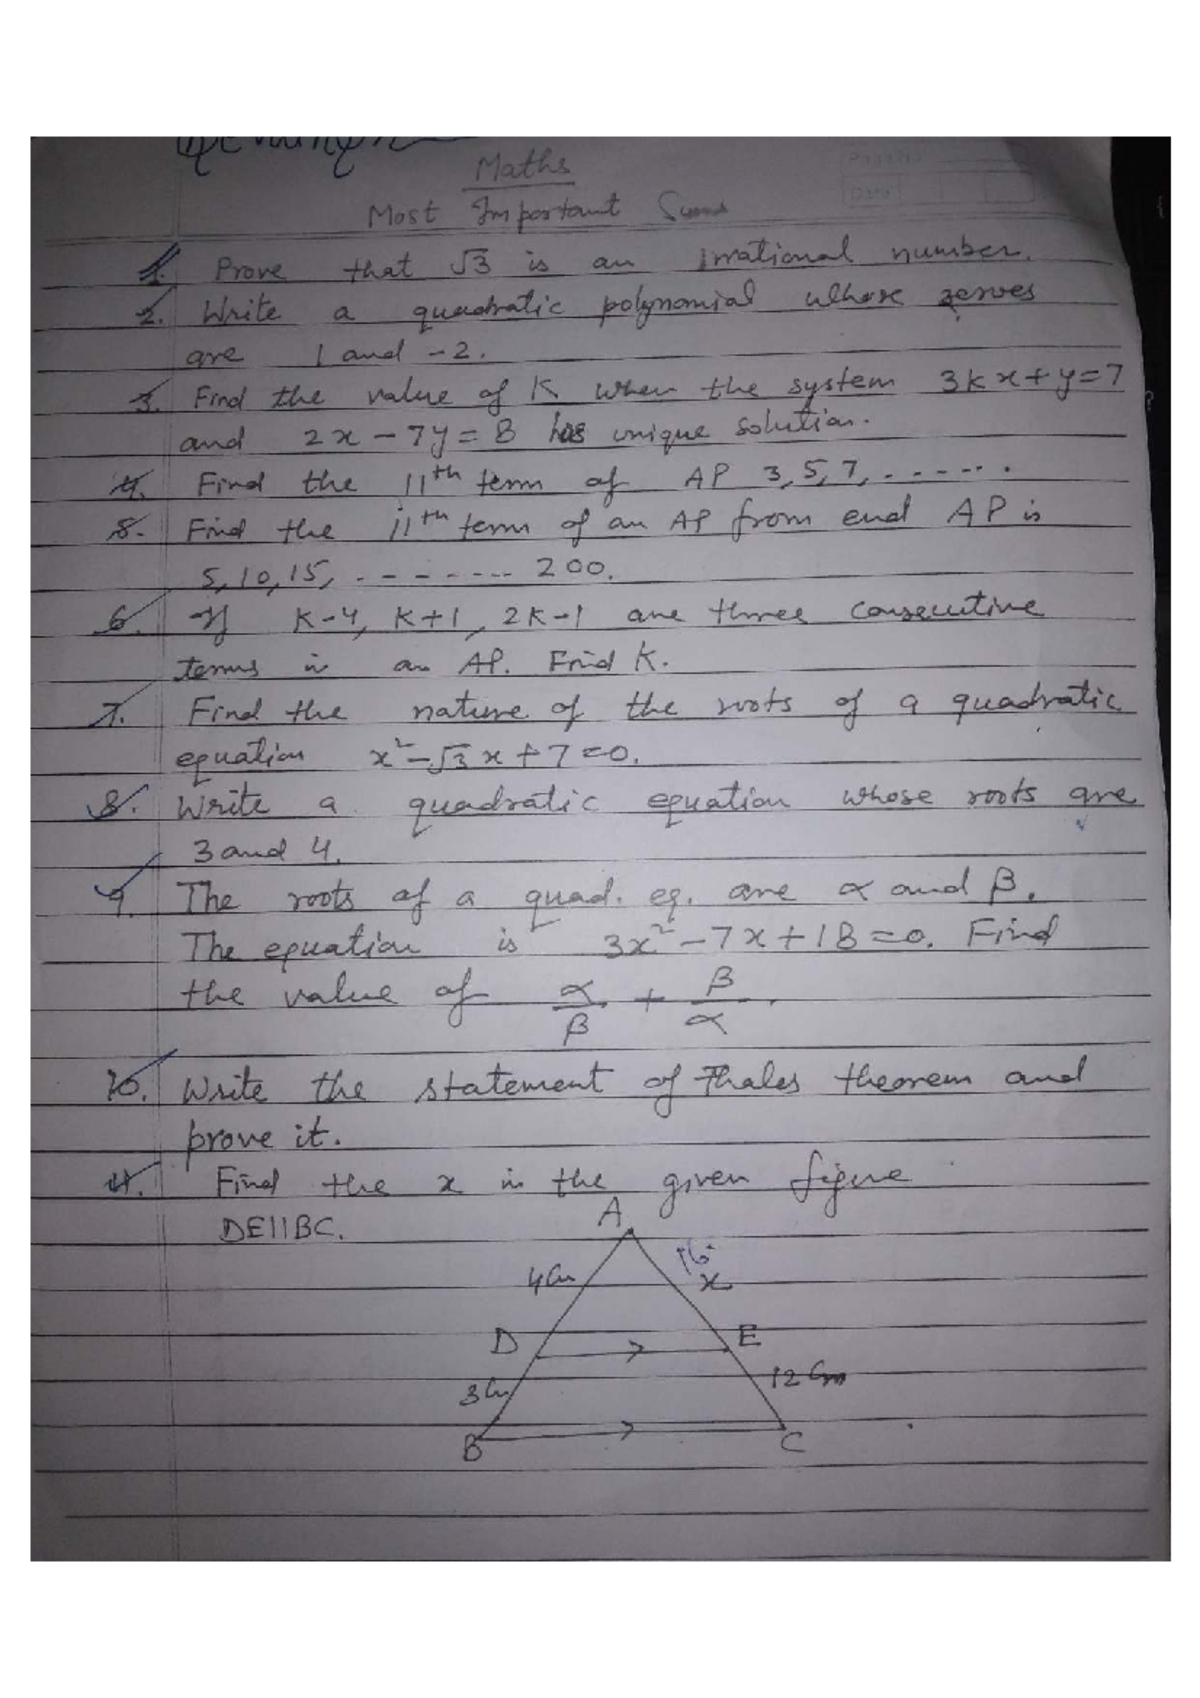 Maths
Most Important Sums
1. Prove that √3 is an irrational number.
2. Write a quadratic polynomial whose zeroes
are 1 and -2.
3. Find the value of K when the system 3kx+y=7
and 2x-7y=8 has unique solution.
4. Find the 11th term of AP 3,5,7,.......
5. Find the 11th term of an AP from end AP is
5,10,15,-------200.
6. If K-4, K+1, 2K-1 are three consecutive
terms in an AP. Find K.
7. Find the nature of the roots of a quadratic
equation x²-√3x+7=0.
8. Write a quadratic equation whose roots are
3 and 4.
9. The roots of a quad. eq. are α and β.
The equation is 3x²-7x+18=0. Find
the value of α/β + β/α.
10. Write the statement of Thales theorem and
prove it.
11. Find the x in the given figure
DE||BC.
A
16
4Cm x
D E
3Cm 12 Cm
B C